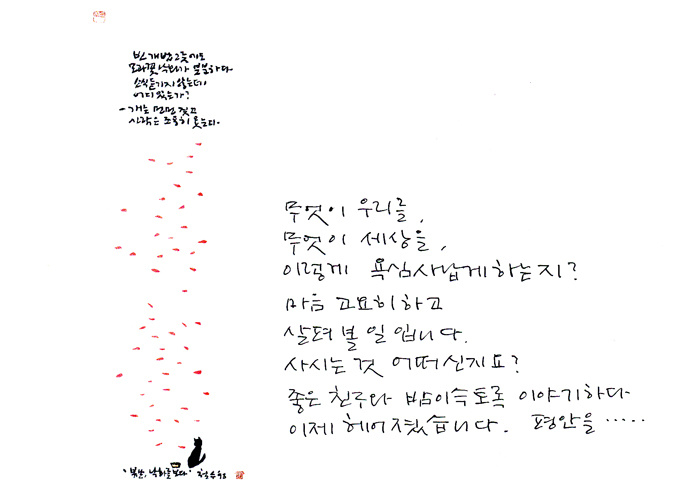 빈 개밥그릇에도
모과꽃 낙화가 분분하다
소식 듣기지 않는데
어디 있는가?
- 개는 멀면 짖고
사람은 조용히 웃는다.
무엇이 우리를,
무엇이 세상을,
이렇게 욕심사납게하는지?
마음 고요히하고
살펴볼 일입니다.
사시는 것 어떠신지요?
좋은 친구와 밤이슥토록 이야기하다
이제 헤어졌습니다. 평안을 .....
낙화를 보다"